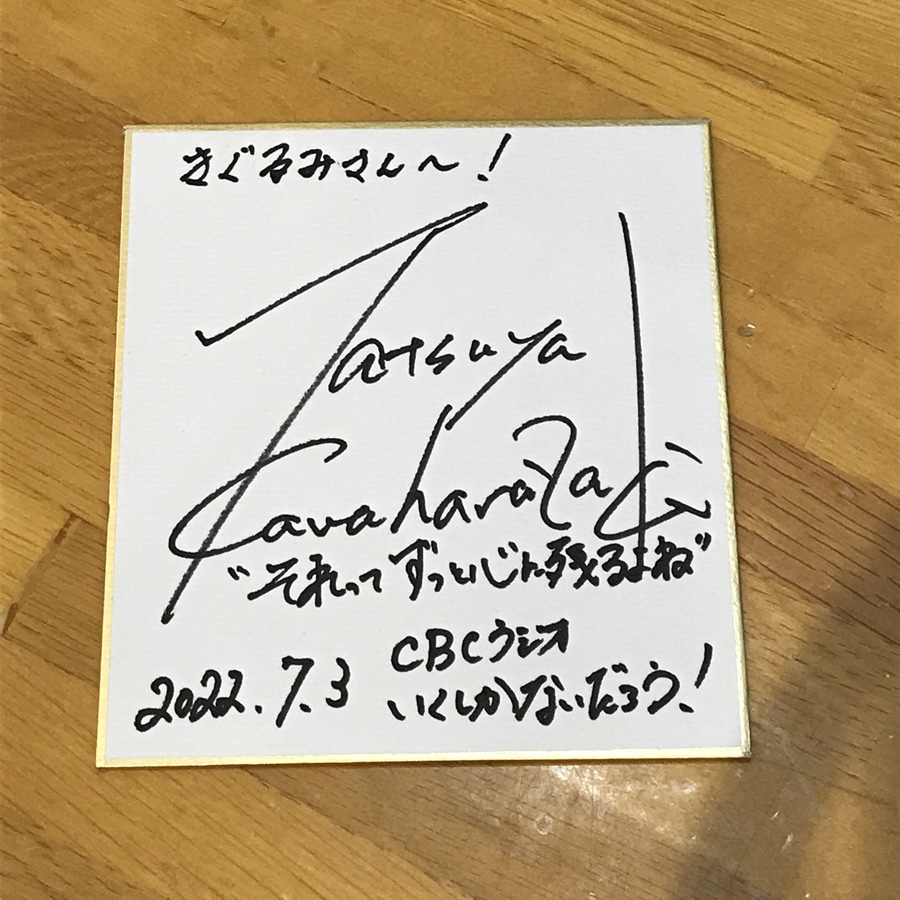 きぐるみさん～!
Tatsuya
Kawaharazaki
"それって ずっといじん残るよね"
CBCラジオ
2022.7.3 いくしかないだろう!